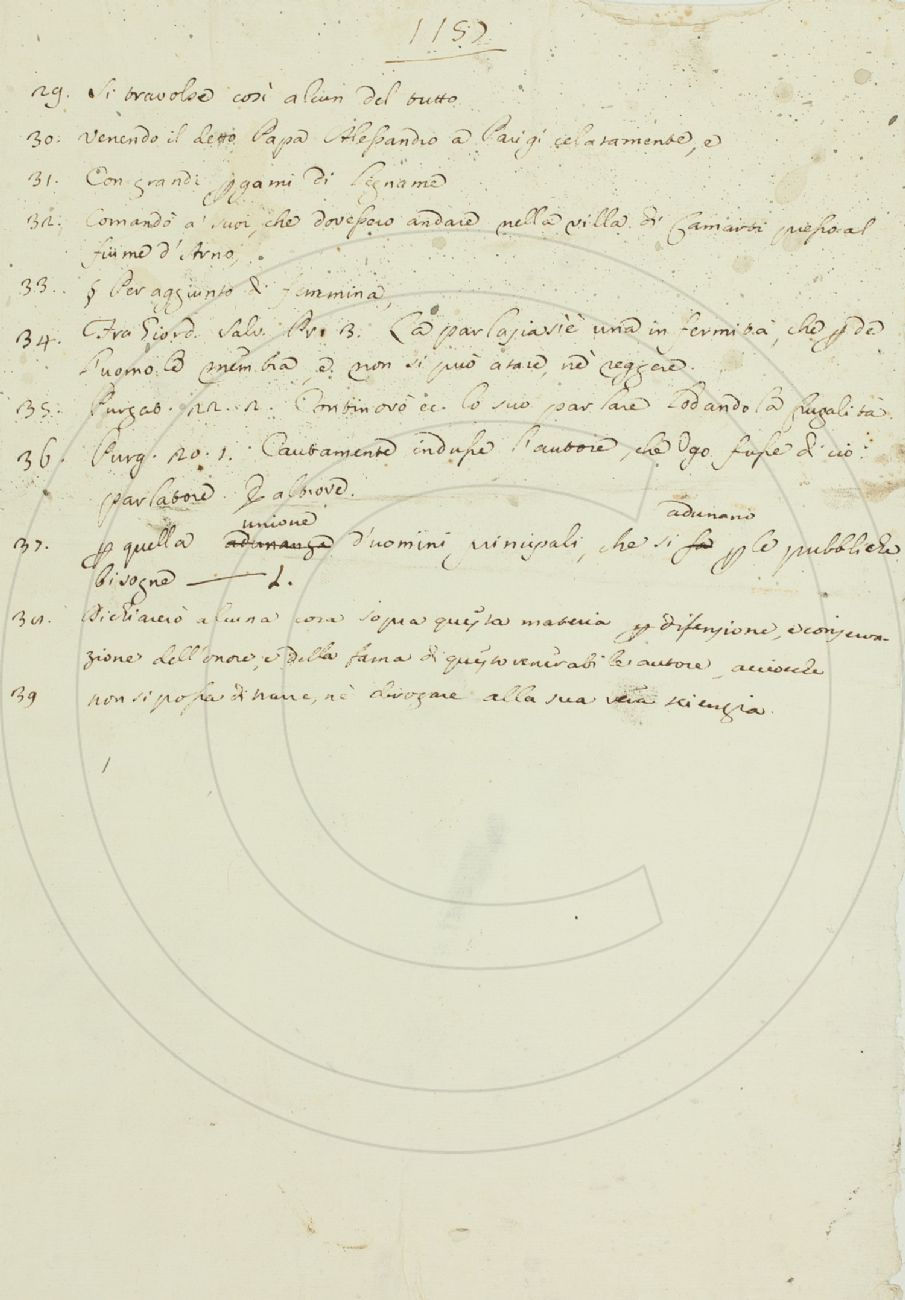 1157
29. Si travolse così alcun del tutto
30. Venendo il detto Papa Alessandro a Parigi celatamente, e
31. Con grandi ꝑgami di legname
32. Comandò a' suoi, che dovessero andare nella villa di Camarti presso al
fiume d'Arno,
33. § Per aggiunto di femmina,
34. Fra Giord. Salv. Pr. 3. La parlasia si è una infermità, che ꝑde
l'uomo le membra, e non si può atare, nè reggere.
35. Purgat. 22. 2. Continovò ec. lo suo parlare lodando la frugalità
36. Purg. 20. 1. Cautamente indusse l'autore, che Ugo fusse di ciò
parlatore. E altrove.
unione adunano
37. ꝑ quella adunanza d'uomini principali, che si fa ꝑ le pubbliche
bisogne
38. Dichiarerò alcuna cosa sopra questa materia ꝑ difensione, e conserva-
zione dell'onore, e della fama di questo venerabile autore, acciocchè
39 non si possa dinare, nè dirogare alla sua vera scienzia.